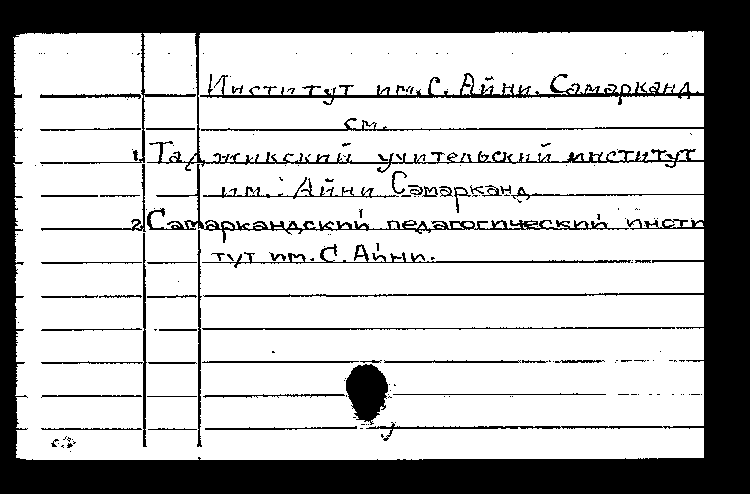 Институт им. С. Айни. Самарканд.
см.
1. Таджикский учительский институт
им. Айни Самарканд.
2. Самаркандский педагогический инсти
тут им. С. Айни.